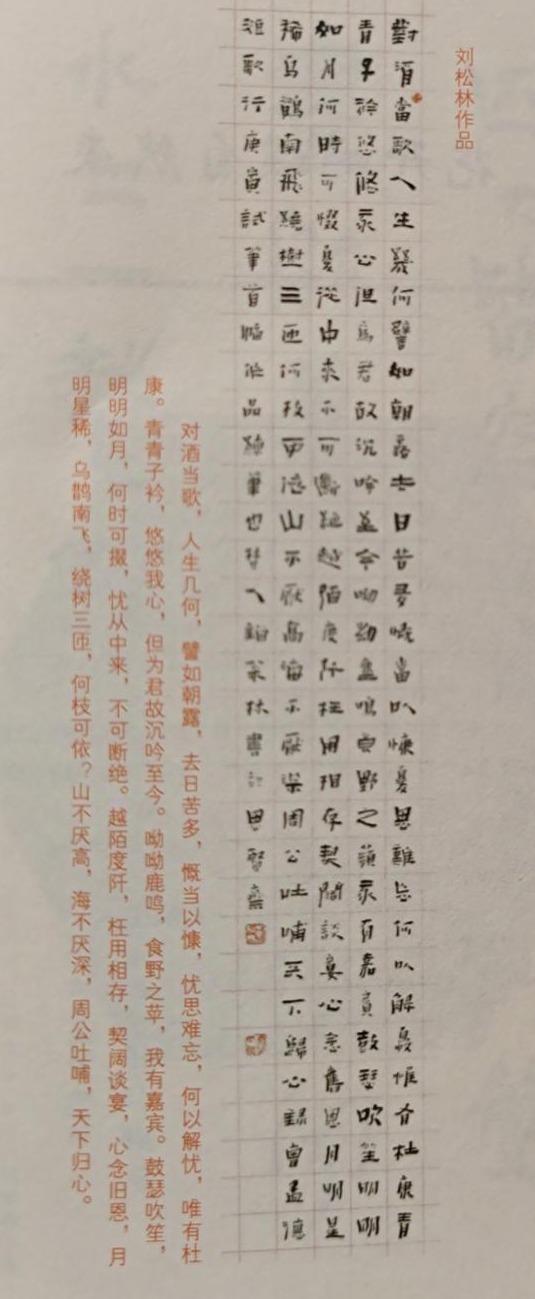 刘松林作品
對酒當歌人生幾何譬如朝露去日苦多慨當以慷憂思難忘何以解憂惟有杜康青
青子衿悠悠我心但為君故沉吟至今呦呦鹿鳴食野之蘋我有嘉賓鼓瑟吹笙明明
如月何時可掇憂從中來不可斷絕越陌度阡枉用相存契闊談宴心念舊恩月明星
稀烏鵲南飛繞樹三匝何枝可依山不厭高海不厭深周公吐哺天下歸心錄曹孟德
短歌行庚寅試筆首幅作品筆也林書思齋
对酒当歌，人生几何，譬如朝露，去日苦多，慨当以慷，忧思难忘，何以解忧，唯有杜
康。青青子衿，悠悠我心，但为君故沉吟至今。呦呦鹿鸣，食野之苹，我有嘉宾。鼓瑟吹笙，
明明如月，何时可掇，忧从中来，不可断绝。越陌度阡，枉用相存，契阔谈宴，心念旧恩，月
明星稀，乌鹊南飞，绕树三匝，何枝可依？山不厌高，海不厌深，周公吐哺，天下归心。